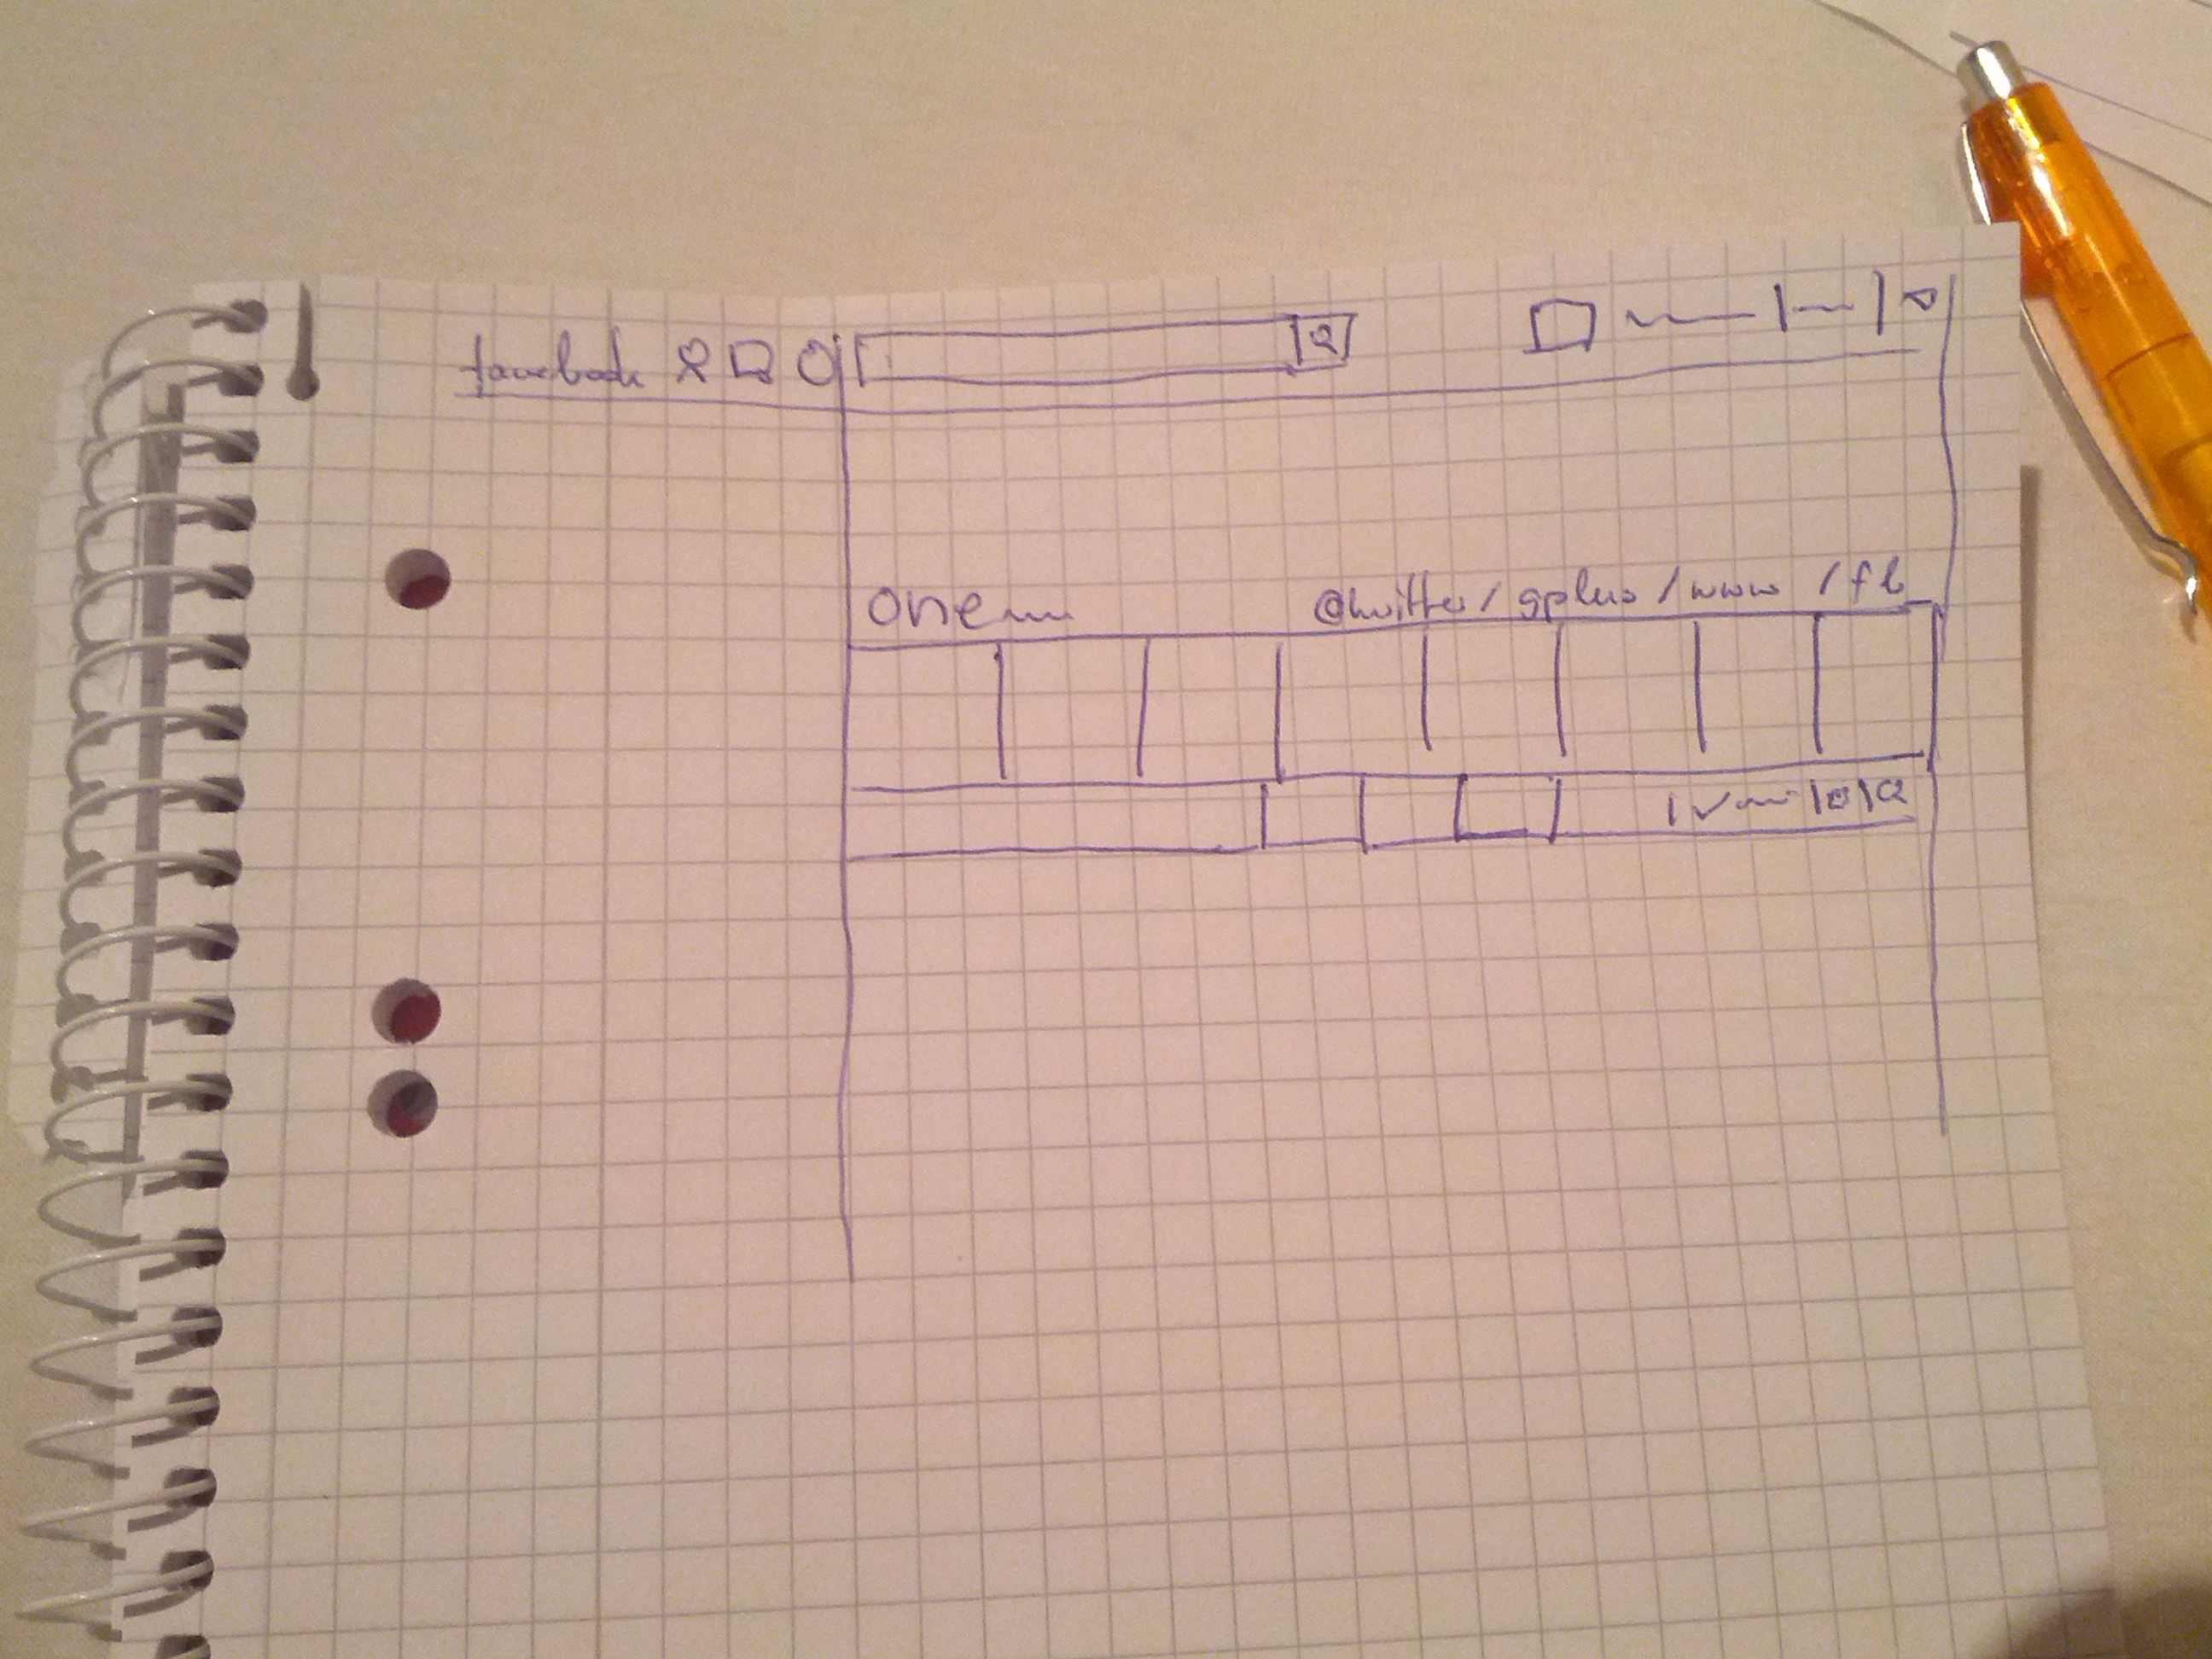 facebook
one @twitter / gplus / www / fb